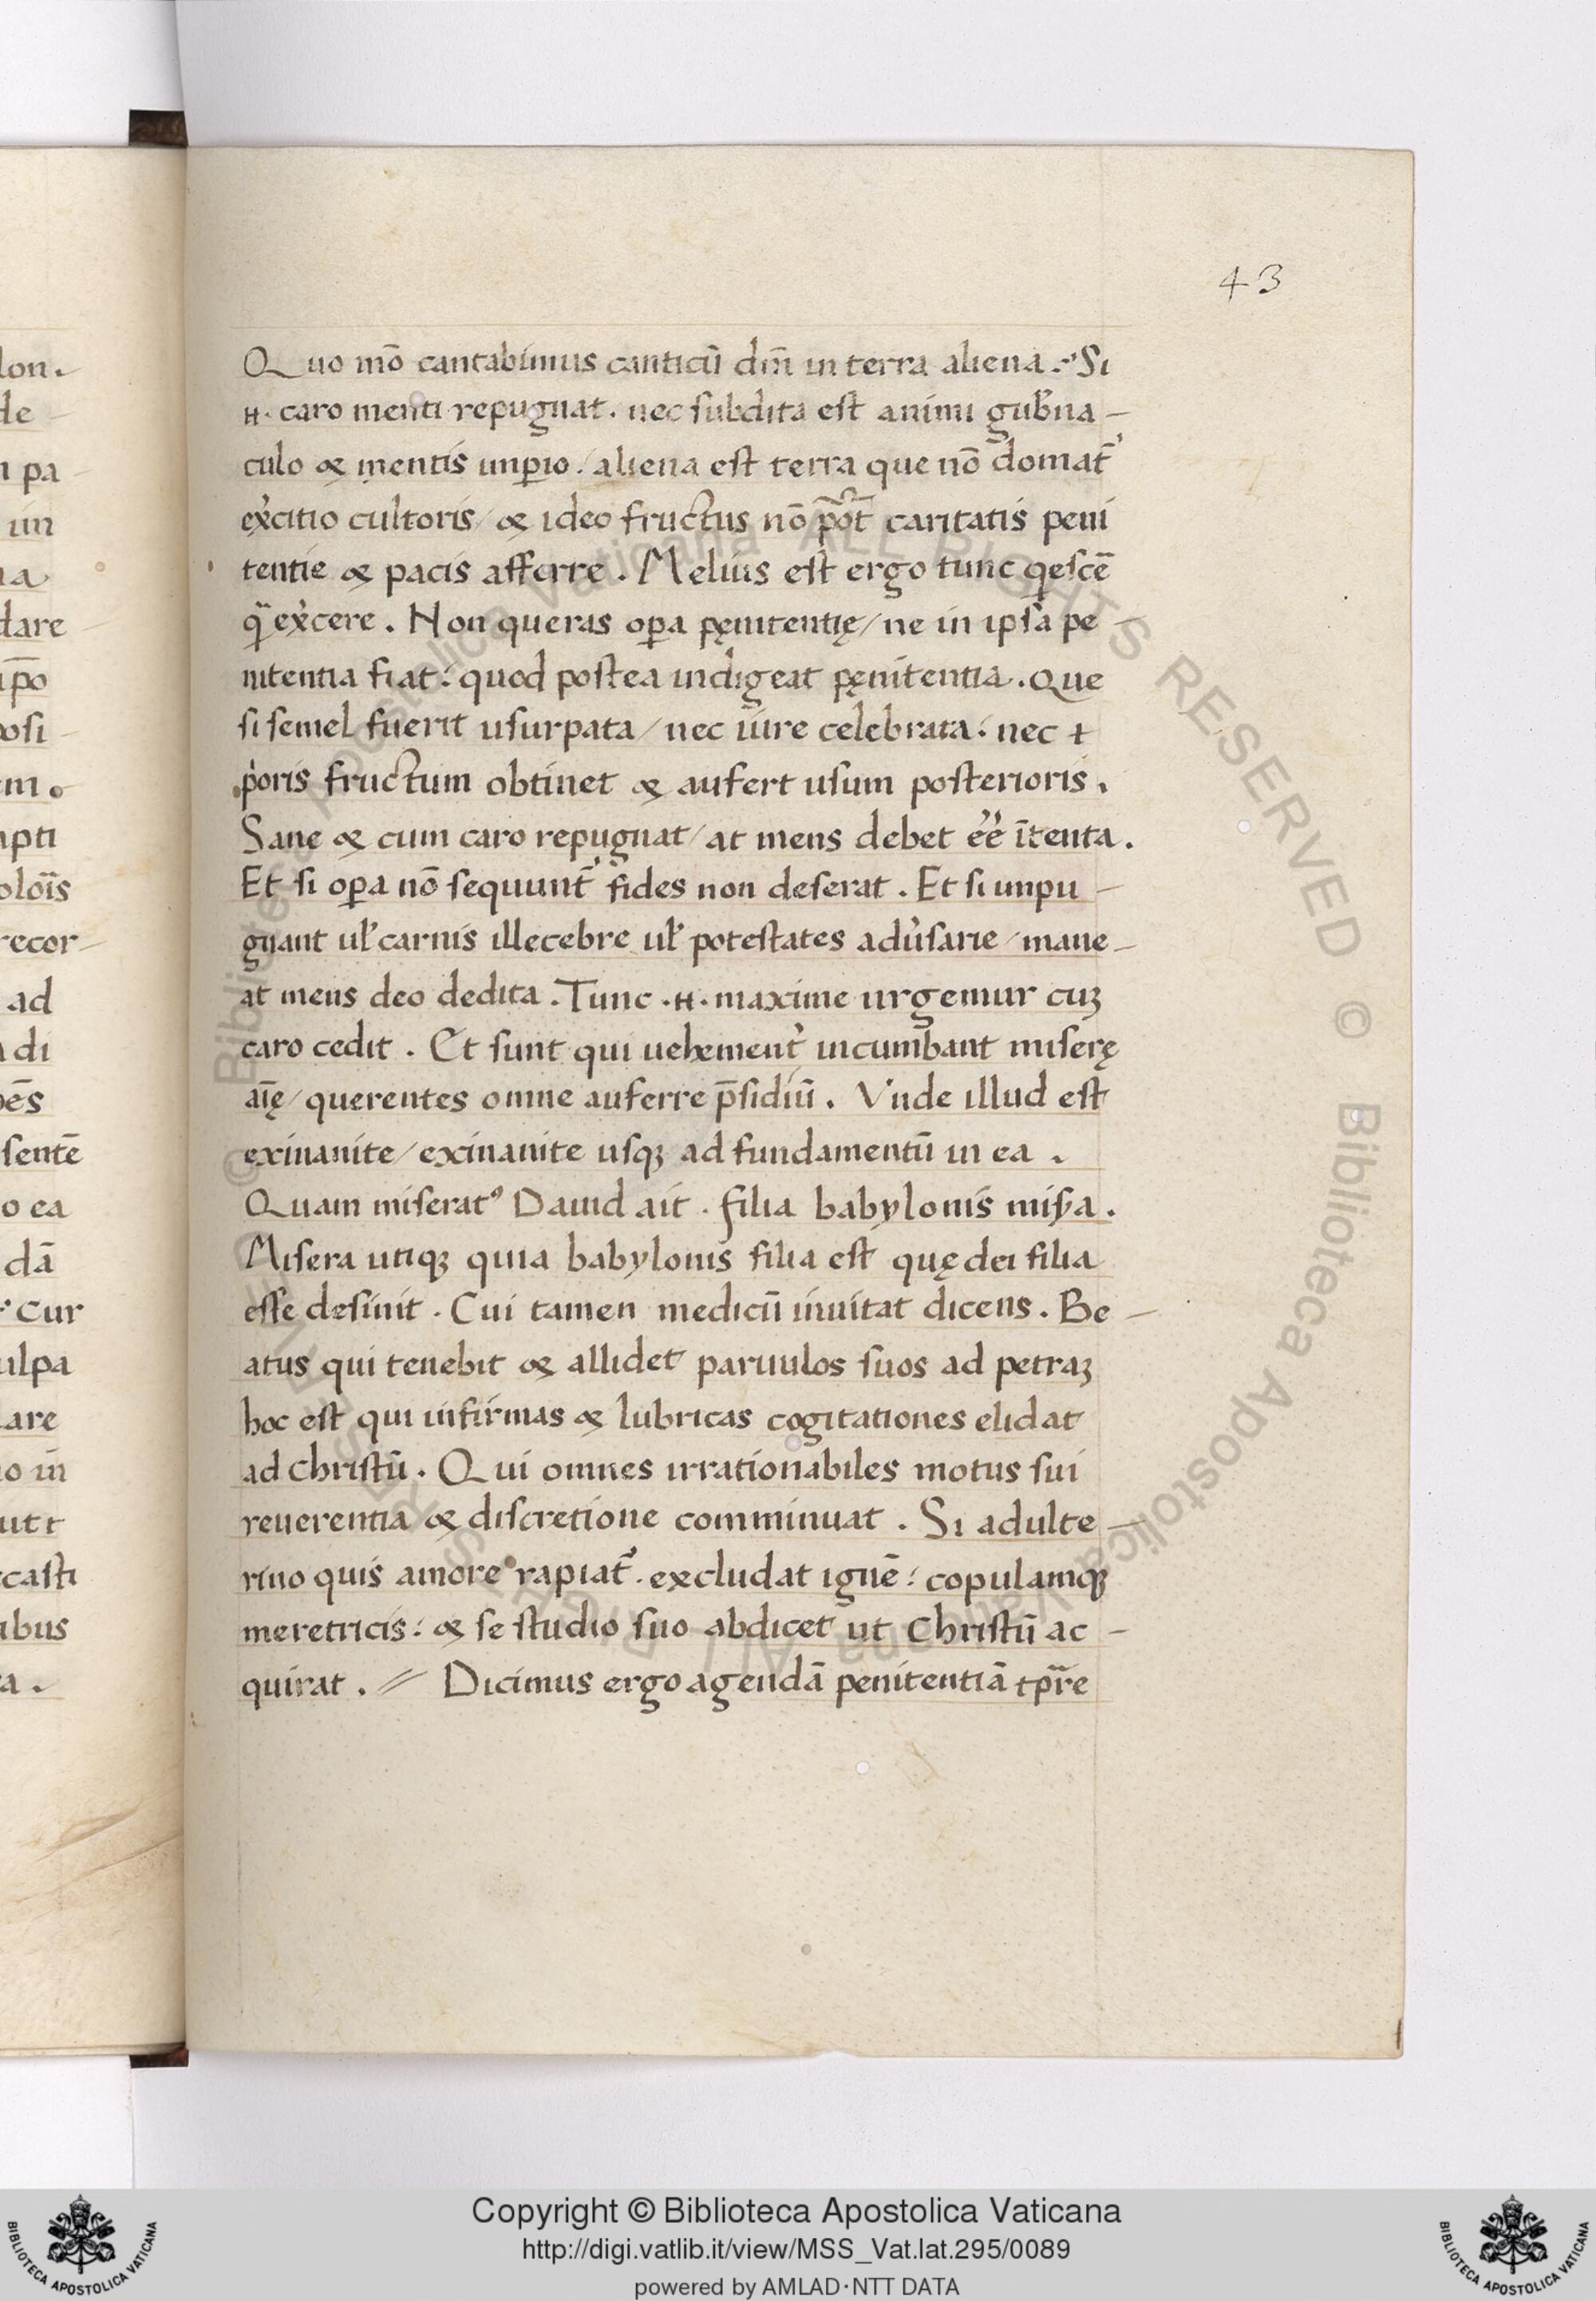 43
lon.
de
n pa
im
na
dare
ip̄o
posi
em.
mpti
oloīs
recor-
ad
di
ēs
sentē
o ea
dā
Cur
ulpa
are
o in
casti
ibus
a.
Quo mō cantabimus canticū dm̄ in terra aliena. Si
.H. caro menti repugnat. nec subdita est animi gub̄na-
culo & mentis imꝑio/ aliena est terra que nō domat̄
exc̓itio cultoris/ & ideo fructus nō p̄ot caritatis peni
tentie & pacis afferre. Melius est ergo tunc q̇escē
qͣ̄ exc̓ere. Non queras oꝑa pęnitentię/ ne in ipsa pe
nitentia fiat: quod postea indigeat pęnitentia. Que
si semel fuerit usurpata/ nec iure celebrata: nec &
p̓oris fructum obtinet & aufert usum posterioris.
Sane & cum caro repugnat/ at mens debet ēe ītenta.
Et si oꝑa nō sequunt̄ fides non deserat. Et si inpu-
gnant ul̓ carnis illecebre ul̓ potestates adu̓sarie/ mane-
at mens deo dedita. Tunc .H. maxime urgemur cuꝫ
caro cedit. Et sunt qui uehement̓ incumbant miserę
aīę/ querentes omne auferre p̄sidiū. Vnde illud est
exinanite/ exinanite usqꝫ ad fundamentū in ea.
Quam miseratꝰ Dauid ait. filia babylonis mis̓a.
Misera utiqꝫ quia babylonis filia est quę dei filia
esse desinit. Cui tamen medicū inuitat dicens. Be-
atus qui tenebit & allidet paruulos suos ad petraꝫ
hoc est qui infirmas & lubricas cogitationes elidat
ad christū. Qui omnes irrationabiles motus sui
reuerentia & discretione comminuat. Si adulte-
rino quis amore rapiat̄. excludat ignē: copulamqꝫ
meretricis: & se studio suo abdicet ut Christū ac-
quirat. // Dicimus ergo agendā penitentiā tꝑr̄e
© Biblioteca Apostolica Vaticana ALL RIGHTS RESERVED © Biblioteca Apostolica Vaticana ALL RIGHTS RESERVED
Copyright © Biblioteca Apostolica Vaticana
http://digi.vatlib.it/view/MSS_Vat.lat.295/0089
powered by AMLAD·NTT DATA
BIBLIOTECA APOSTOLICA VATICANA
BIBLIOTECA APOSTOLICA VATICANA